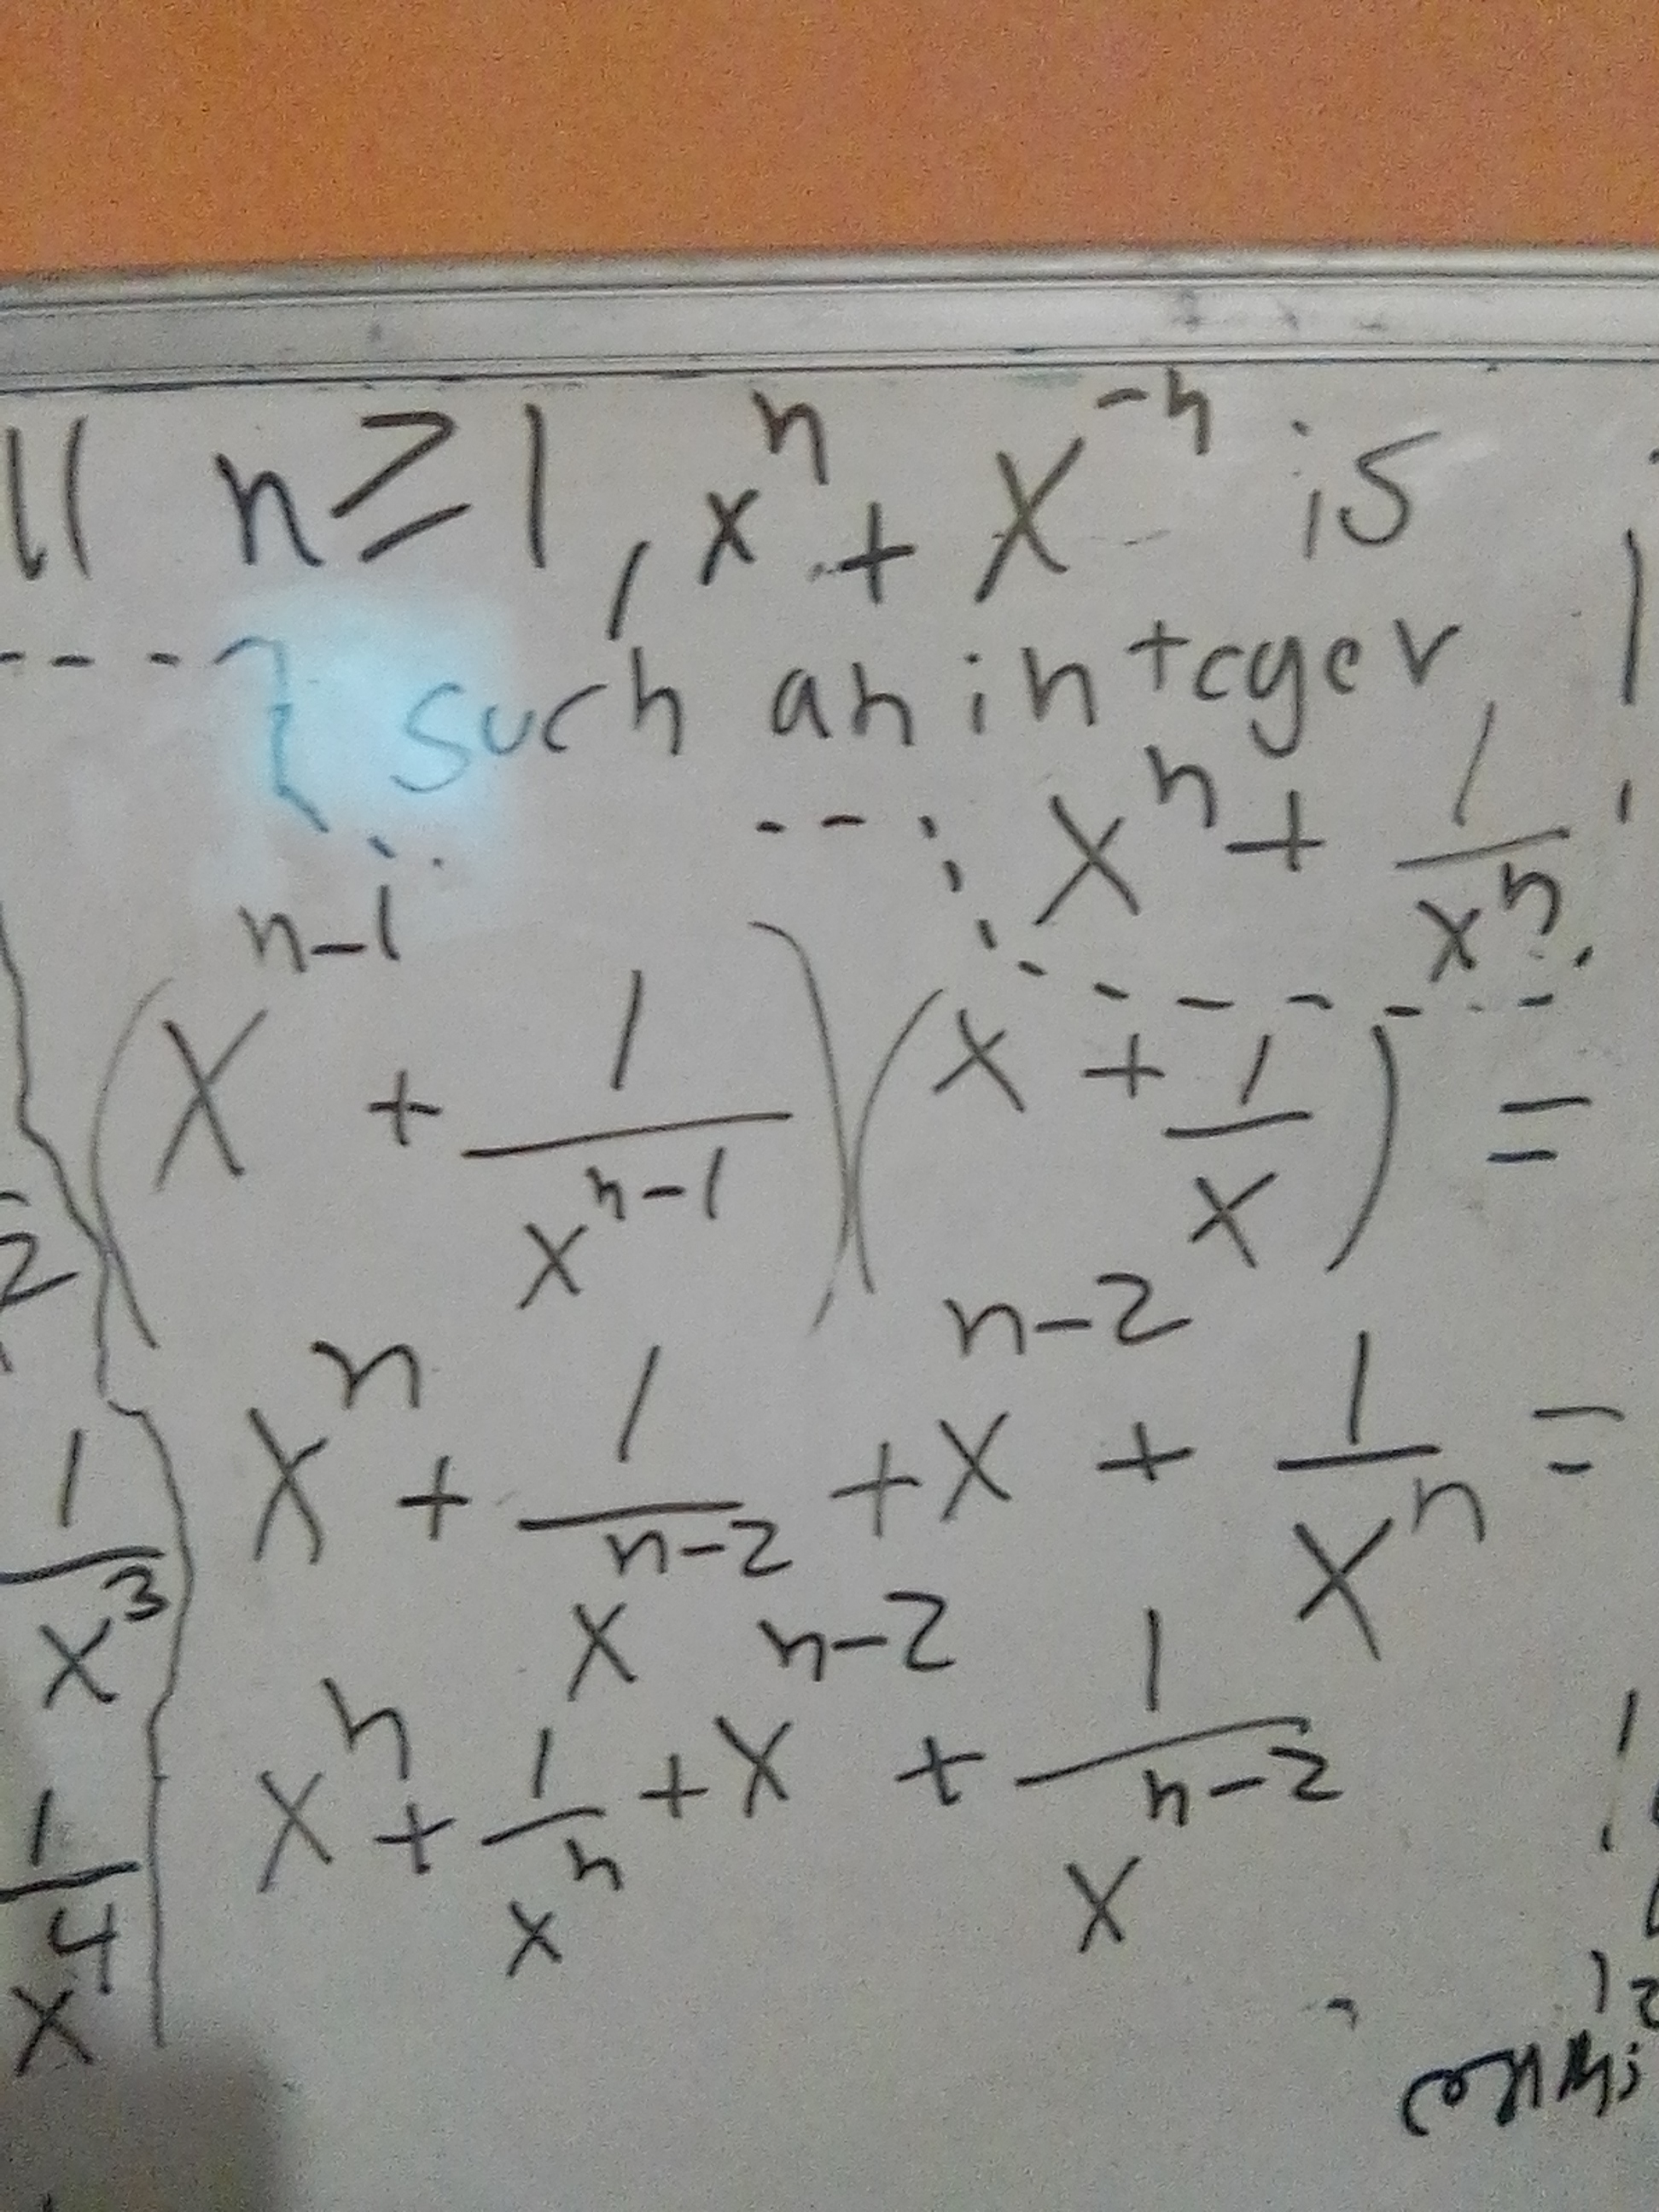 ll n ≥ 1, x^n + x^{-n} is
such an integer
x^n + 1/x^n
(x^{n-1} + 1/x^{n-1})(x + 1/x) =
2
x^n + 1/x^{n-2} + x^{n-2} + 1/x^n =
1/x^3
x^n + 1/x^n + x^{n-2} + 1/x^{n-2}
1/x^4